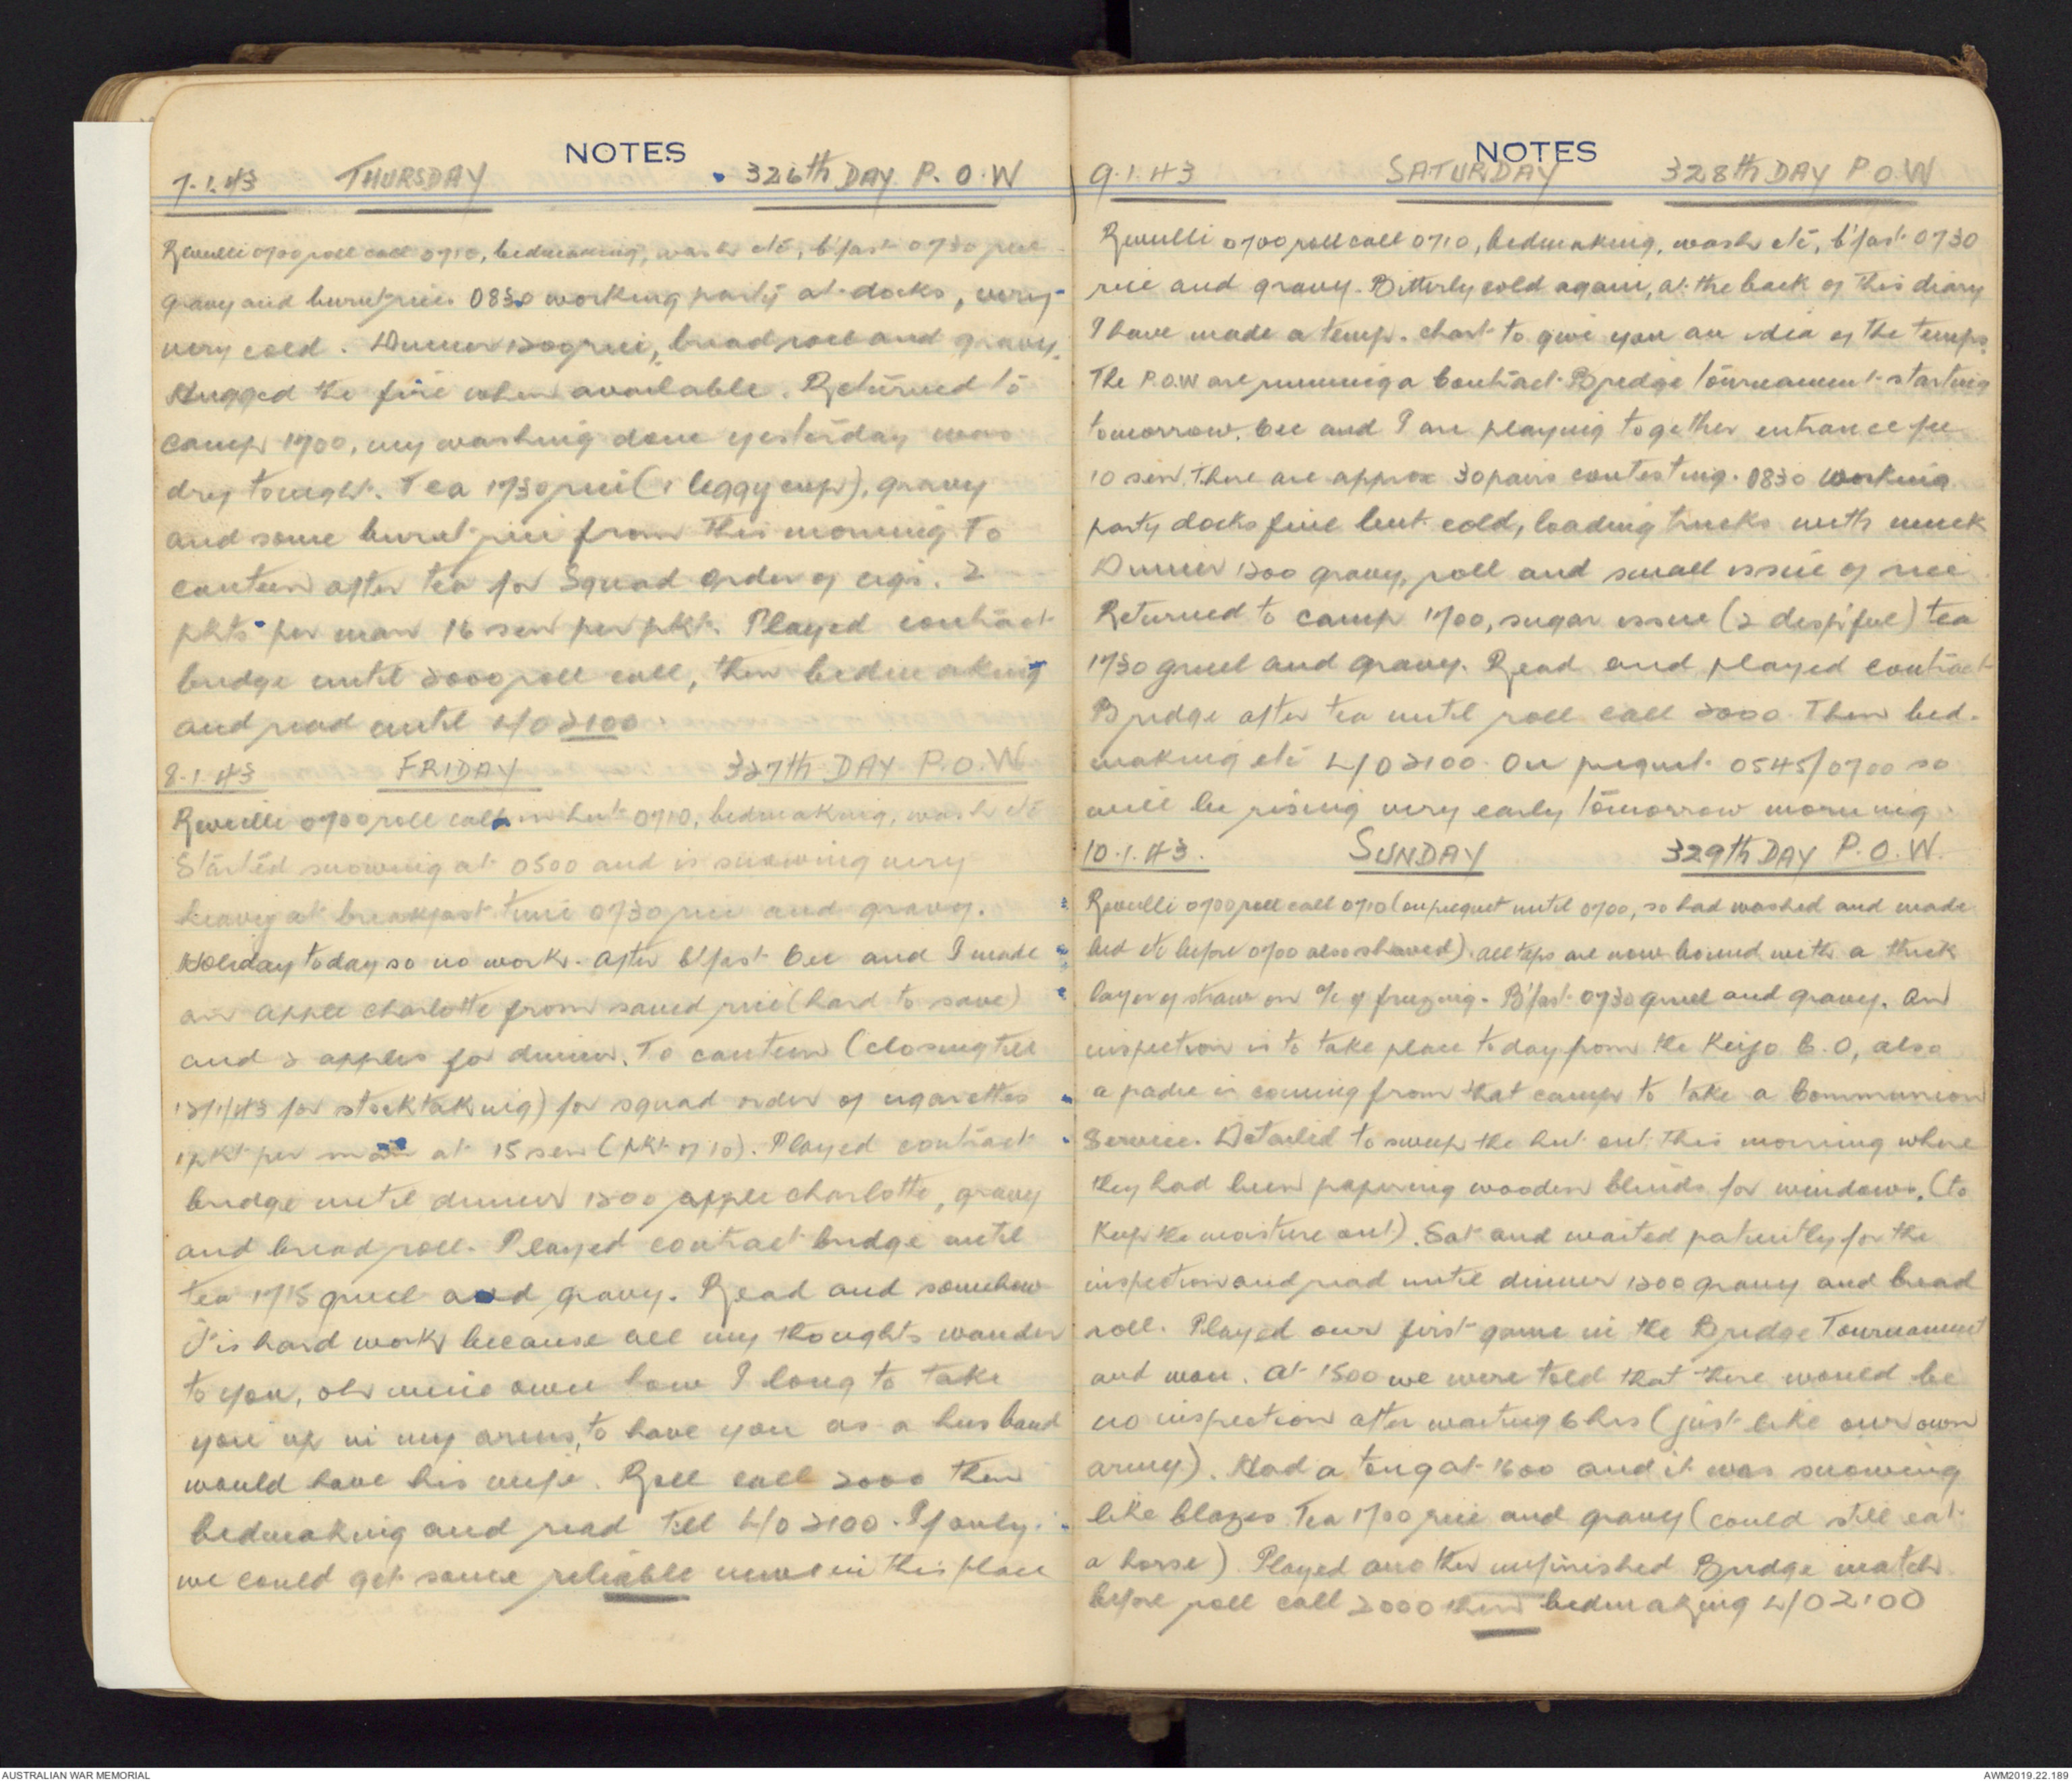 NOTES
7.1.43 THURSDAY 326th DAY P.O.W
Reveille 0700 roll call 0710, bedmaking, wash etc, b'fast 0730 rice
gravy and burnt rice. 0830 working party at docks, very
very cold. Dinner 1200 rice, bread roll and gravy.
Hugged the fire when available. Returned to
camp 1700, my washing done yesterday was
dry tonight. Tea 1730 rice (1 leggy cup), gravy
and some burnt rice from this morning To
canteen after tea for Squad order of cigs. 2
pkts per man 16 sen per pkt. Played contract
bridge until 2000 roll call, then bedmaking
and read until L/O 2100.
8.1.43 FRIDAY 327th DAY P.O.W
Reveille 0700 roll call in hut 0710, bedmaking, wash etc
Started snowing at 0500 and is snowing very
heavy at breakfast time 0730 rice and gravy.
Holiday today so no work. After b'fast Cec and I made
an apple charlotte from saved rice (hard to save)
and 2 apples for dinner. To canteen (closing till
12/1/43 for stocktaking) for squad order of cigarettes
1 pkt per man at 15 sen (pkt of 10). Played contract
bridge until dinner 1200 apple charlotte, gravy
and bread roll. Played contract bridge until
tea 1715 gruel and gravy. Read and somehow
t'is hard work because all my thoughts wander
to you, oh mine own how I long to take
you up in my arms, to have you as a husband
would have his wife. Roll call 2000 then
bedmaking and read till L/O 2100. If only
we could get some reliable news in this place
NOTES
9.1.43 SATURDAY 328th DAY P.O.W
Reveille 0700 roll call 0710, bedmaking, wash etc, b'fast 0730
rice and gravy. Bitterly cold again, at the back of this diary
I have made a temp. chart to give you an idea of the temps.
The P.O.W are running a Contract Bridge tournament starting
tomorrow. Cec and I are playing together entrance fee
10 sen. There are approx 30 pairs contesting. 0830 working
party docks fine but cold, loading trucks with muck
Dinner 1200 gravy, roll and small issue of rice
Returned to camp 1700, sugar issue (2 desp'ful) tea
1730 gruel and gravy. Read and played contract
Bridge after tea until roll call 2000 Then bed-
making etc L/O 2100. On picquet 0545/0700 so
will be rising very early tomorrow morning.
10.1.43. SUNDAY 329th DAY P.O.W.
Reveille 0700 roll call 0710 (on picquet until 0700, so had washed and made
bed etc before 0700 also shaved). All taps are now bound with a thick
layer of straw on a/c of freezing. B'fast 0730 gruel and gravy. An
inspection is to take place today from the Keijo C.O, also
a padre is coming from that camp to take a Communion
Service. Detailed to sweep the hut out this morning where
they had been papering wooden blinds for windows, (to
keep the moisture out). Sat and waited patiently for the
inspection and read until dinner 1200 gravy and bread
roll. Played our first game in the Bridge Tournament
and won. At 1500 we were told that there would be
no inspection after waiting 6 hrs (just like our own
army). Had a tong at 1600 and it was snowing
like blazes. Tea 1700 rice and gravy (could still eat
a horse) Played another unfinished Bridge match
before roll call 2000 then bedmaking L/O 2100
AUSTRALIAN WAR MEMORIAL
AWM2019.22.189